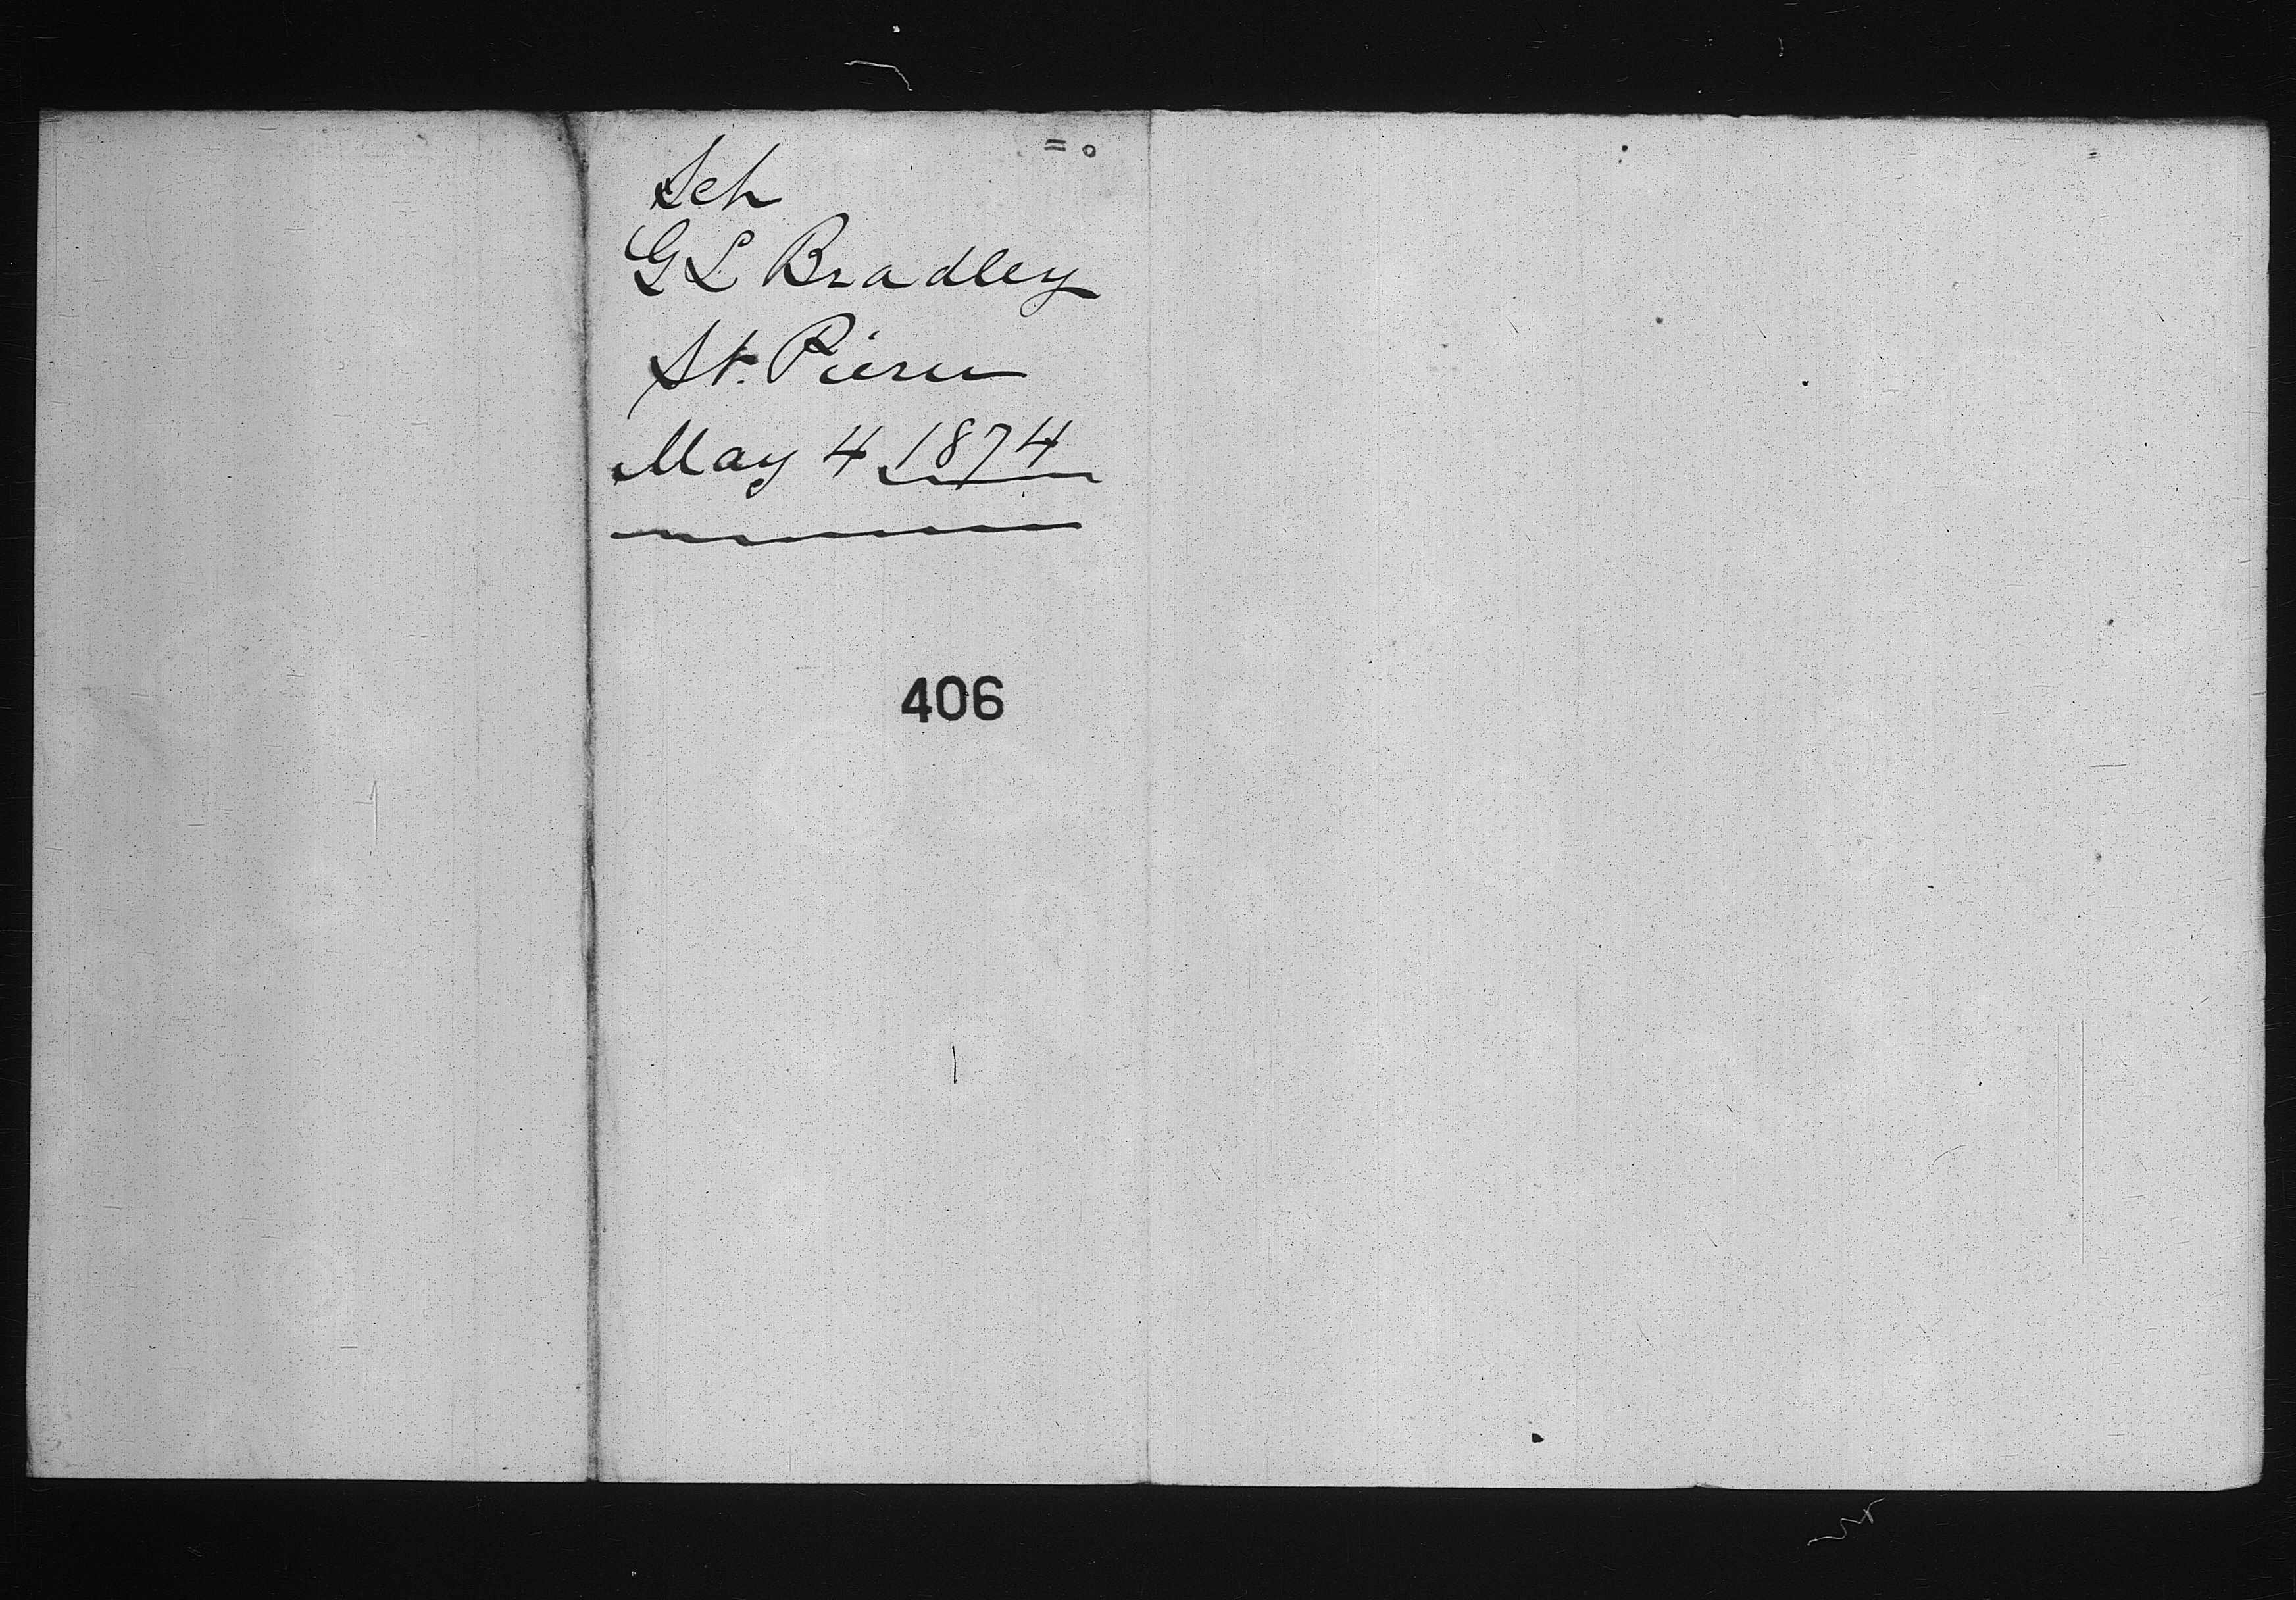 Sch
G L Bradley
St. Pierre
May 4 1874
406